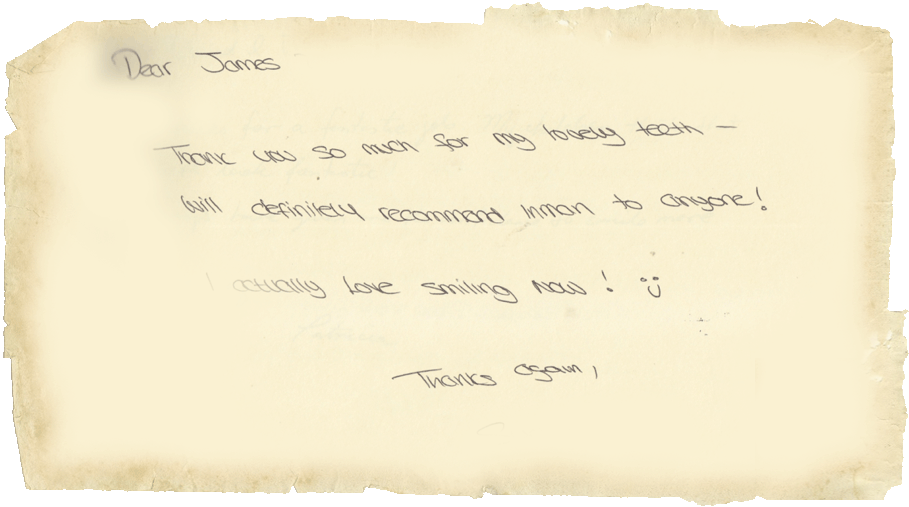 Dear James
Thank you so much for my lovely teeth –
Will definitely recommend Inman to anyone!
I actually love smiling now! :)
Thanks again,